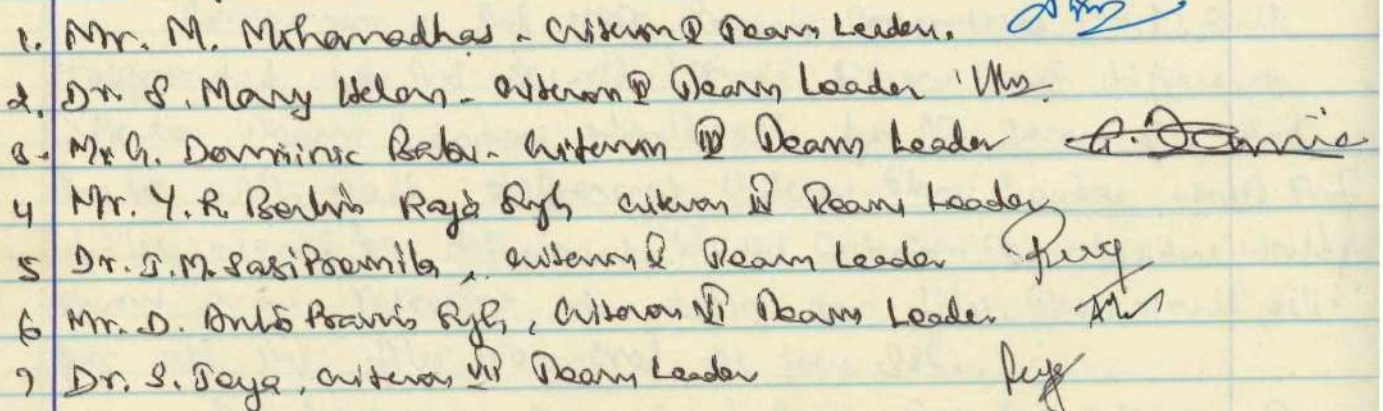 1. Mr. M. Mohanadhas - Criterion I Team Leader.
2. Dr. S. Mary Helan - Criterion II Team Leader
3. Mr. G. Dominic Babu - Criterion III Team Leader G. Dominic
4 Mr. Y. R. Raja Criterion IV Team Leader
5 Dr. J. M. Sasi Pramila, Criterion V Team Leader
6 Mr. D. Anto Pravin, Criterion VI Team Leader
7 Dr. S. Jeya, Criterion VII Team Leader